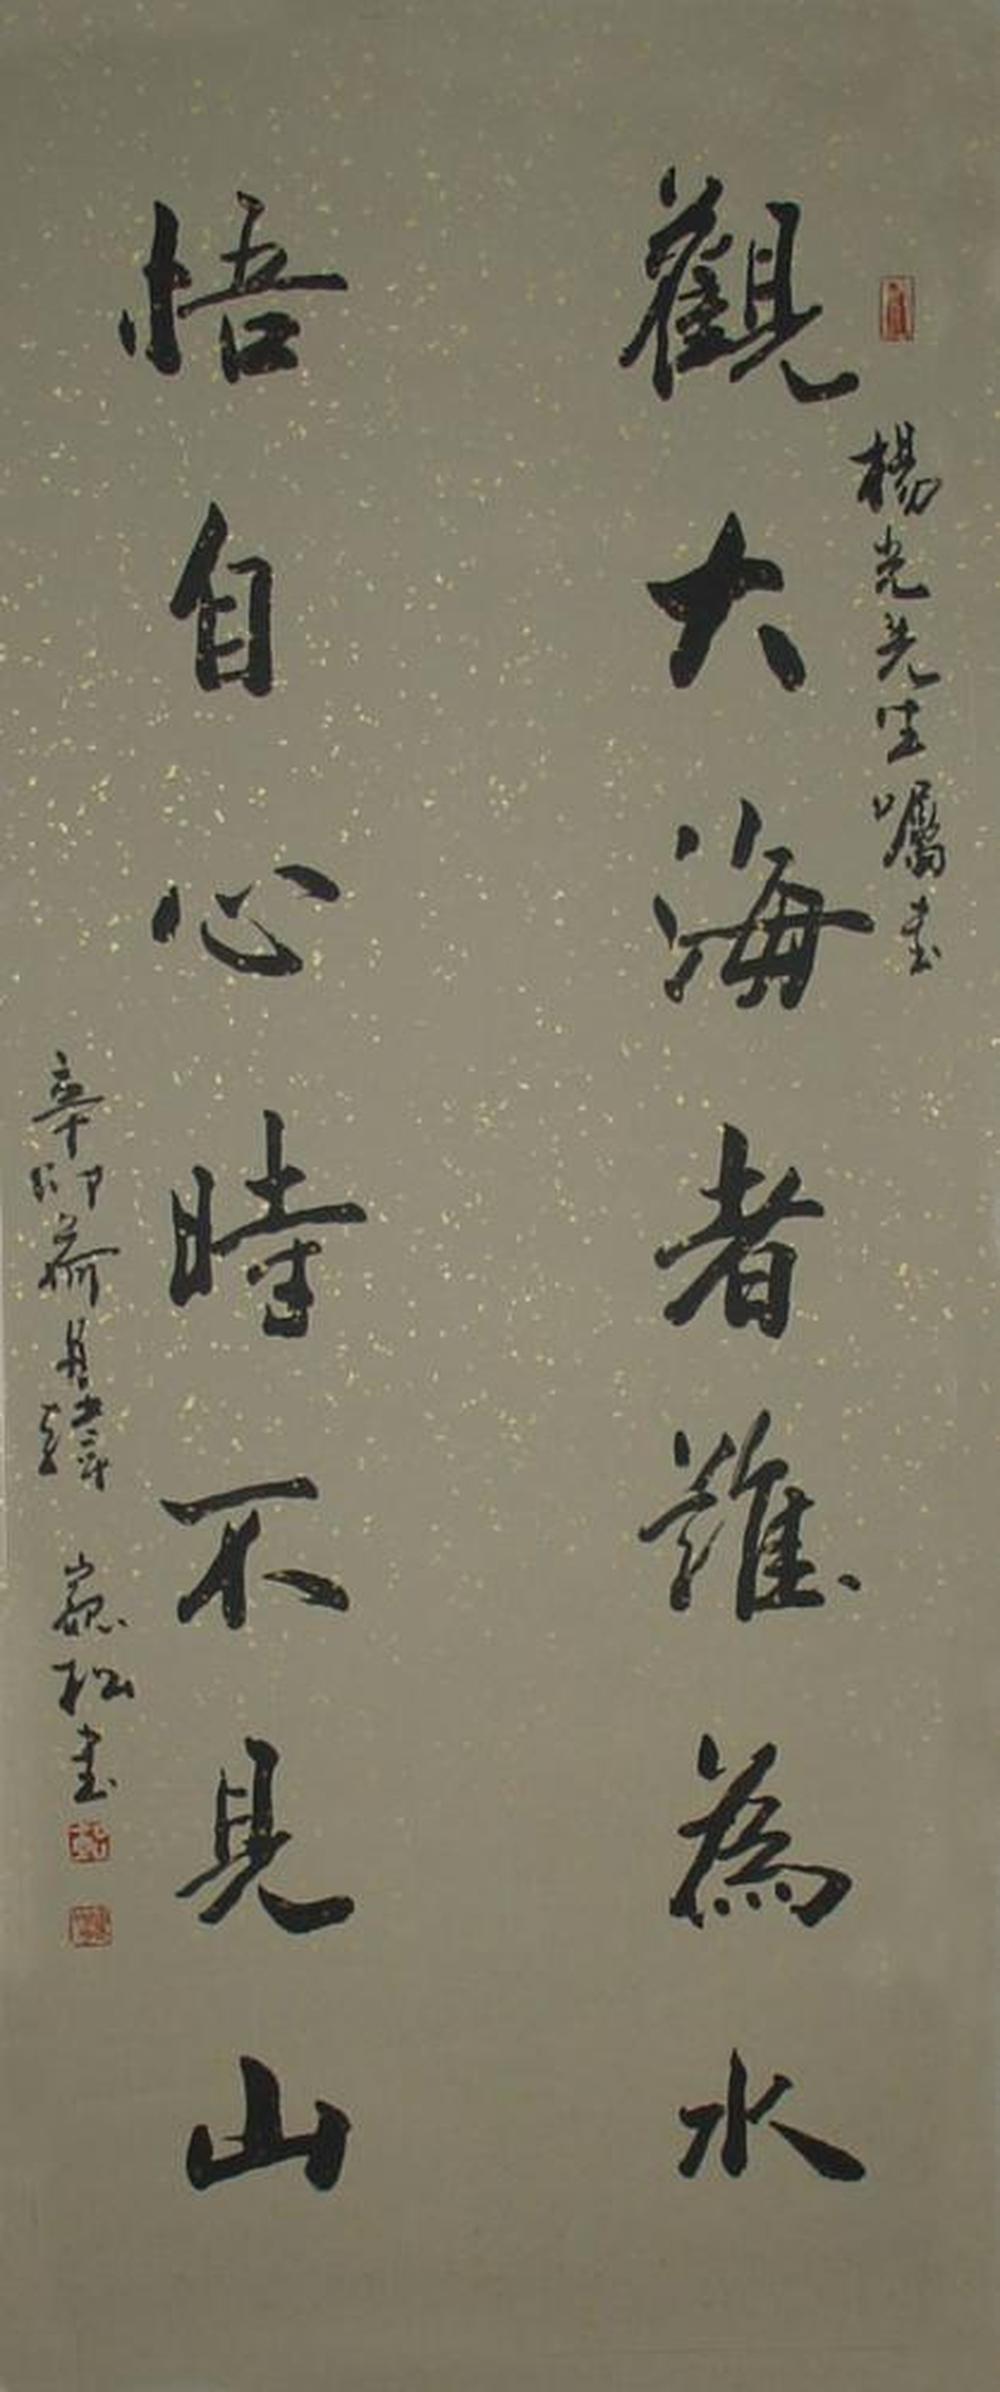 觀大海者難為水
楊光先生囑書
悟自心時不見山
辛卯荷月韓
巍松書